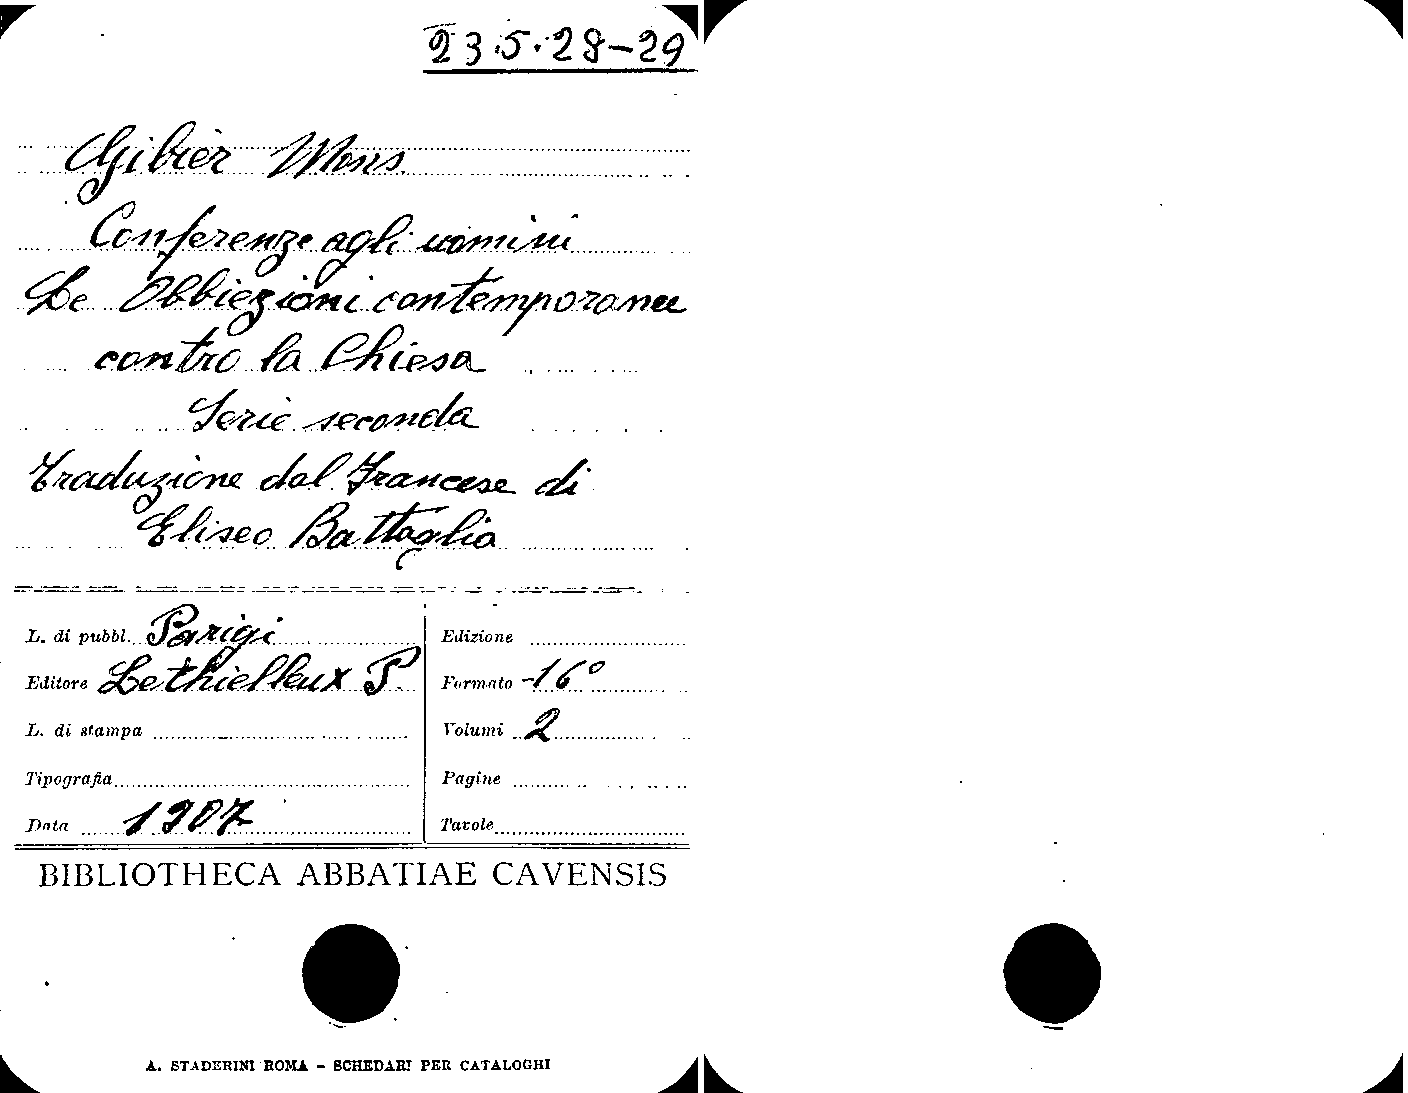 23.5.28-29
Gibier Mons.
Conferenze agli uomini
Le Obbiezioni contemporanee
contro la Chiesa
Serie seconda
Traduzione dal Francese di
Eliseo Battaglia
L. di pubbl. Parigi
Edizione
Editore Lethielleux P.
Formato -16°
L. di stampa
Volumi 2
Tipografia
Pagine
Data 1907
Tavole
BIBLIOTHECA ABBATIAE CAVENSIS
A. STADERINI ROMA - SCHEDARI PER CATALOGHI